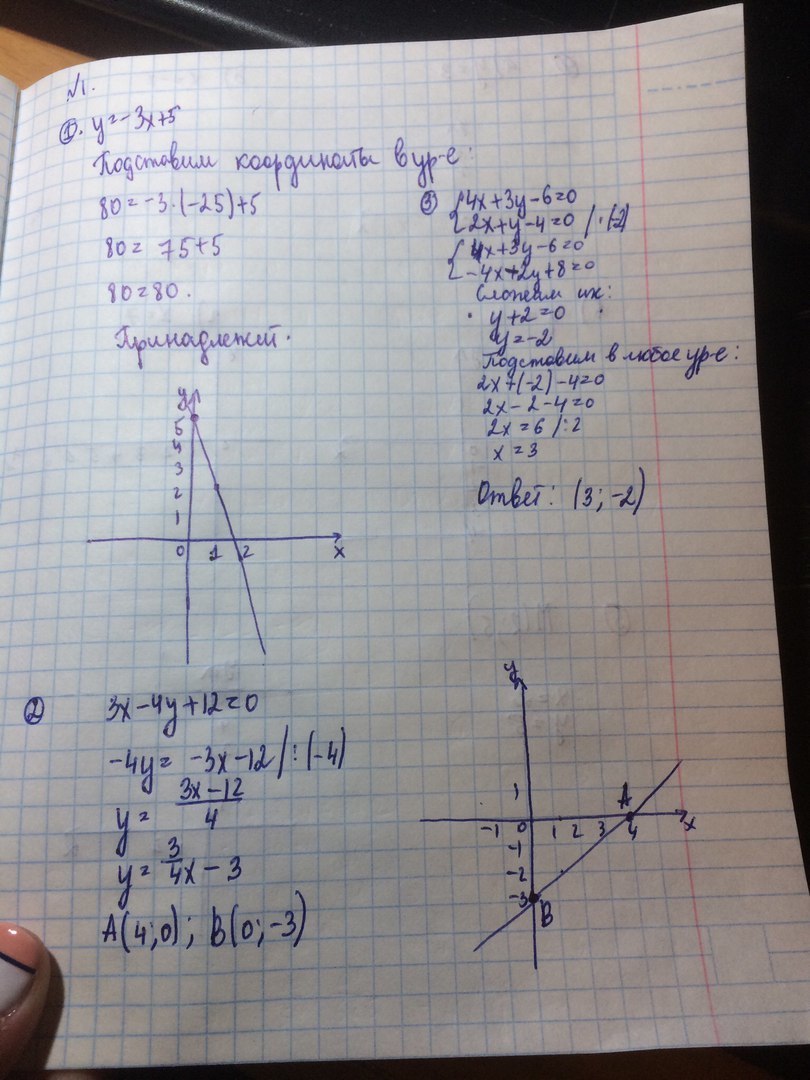 №1.
①. y=-3x+5
Подставим координаты в ур-е:
80=-3·(-25)+5
80= 75+5
80=80.
Принадлежит.
y
5
4
3
2
1
0 1 2 x
③ {4x+3y-6=0
{2x+y-4=0 /·(-2)
{4x+3y-6=0
{-4x+2y+8=0
Сложим их:
y+2=0
y=-2
Подставим в любое ур-е:
2x+(-2)-4=0
2x-2-4=0
2x=6 /:2
x=3
Ответ: (3;-2)
② 3x-4y+12=0
-4y= -3x-12/:(-4)
y= 3x-12
4
y= 3/4x-3
A(4;0); B(0;-3)
y
1
A
-1 0 1 2 3 4 x
-1
-2
-3
B